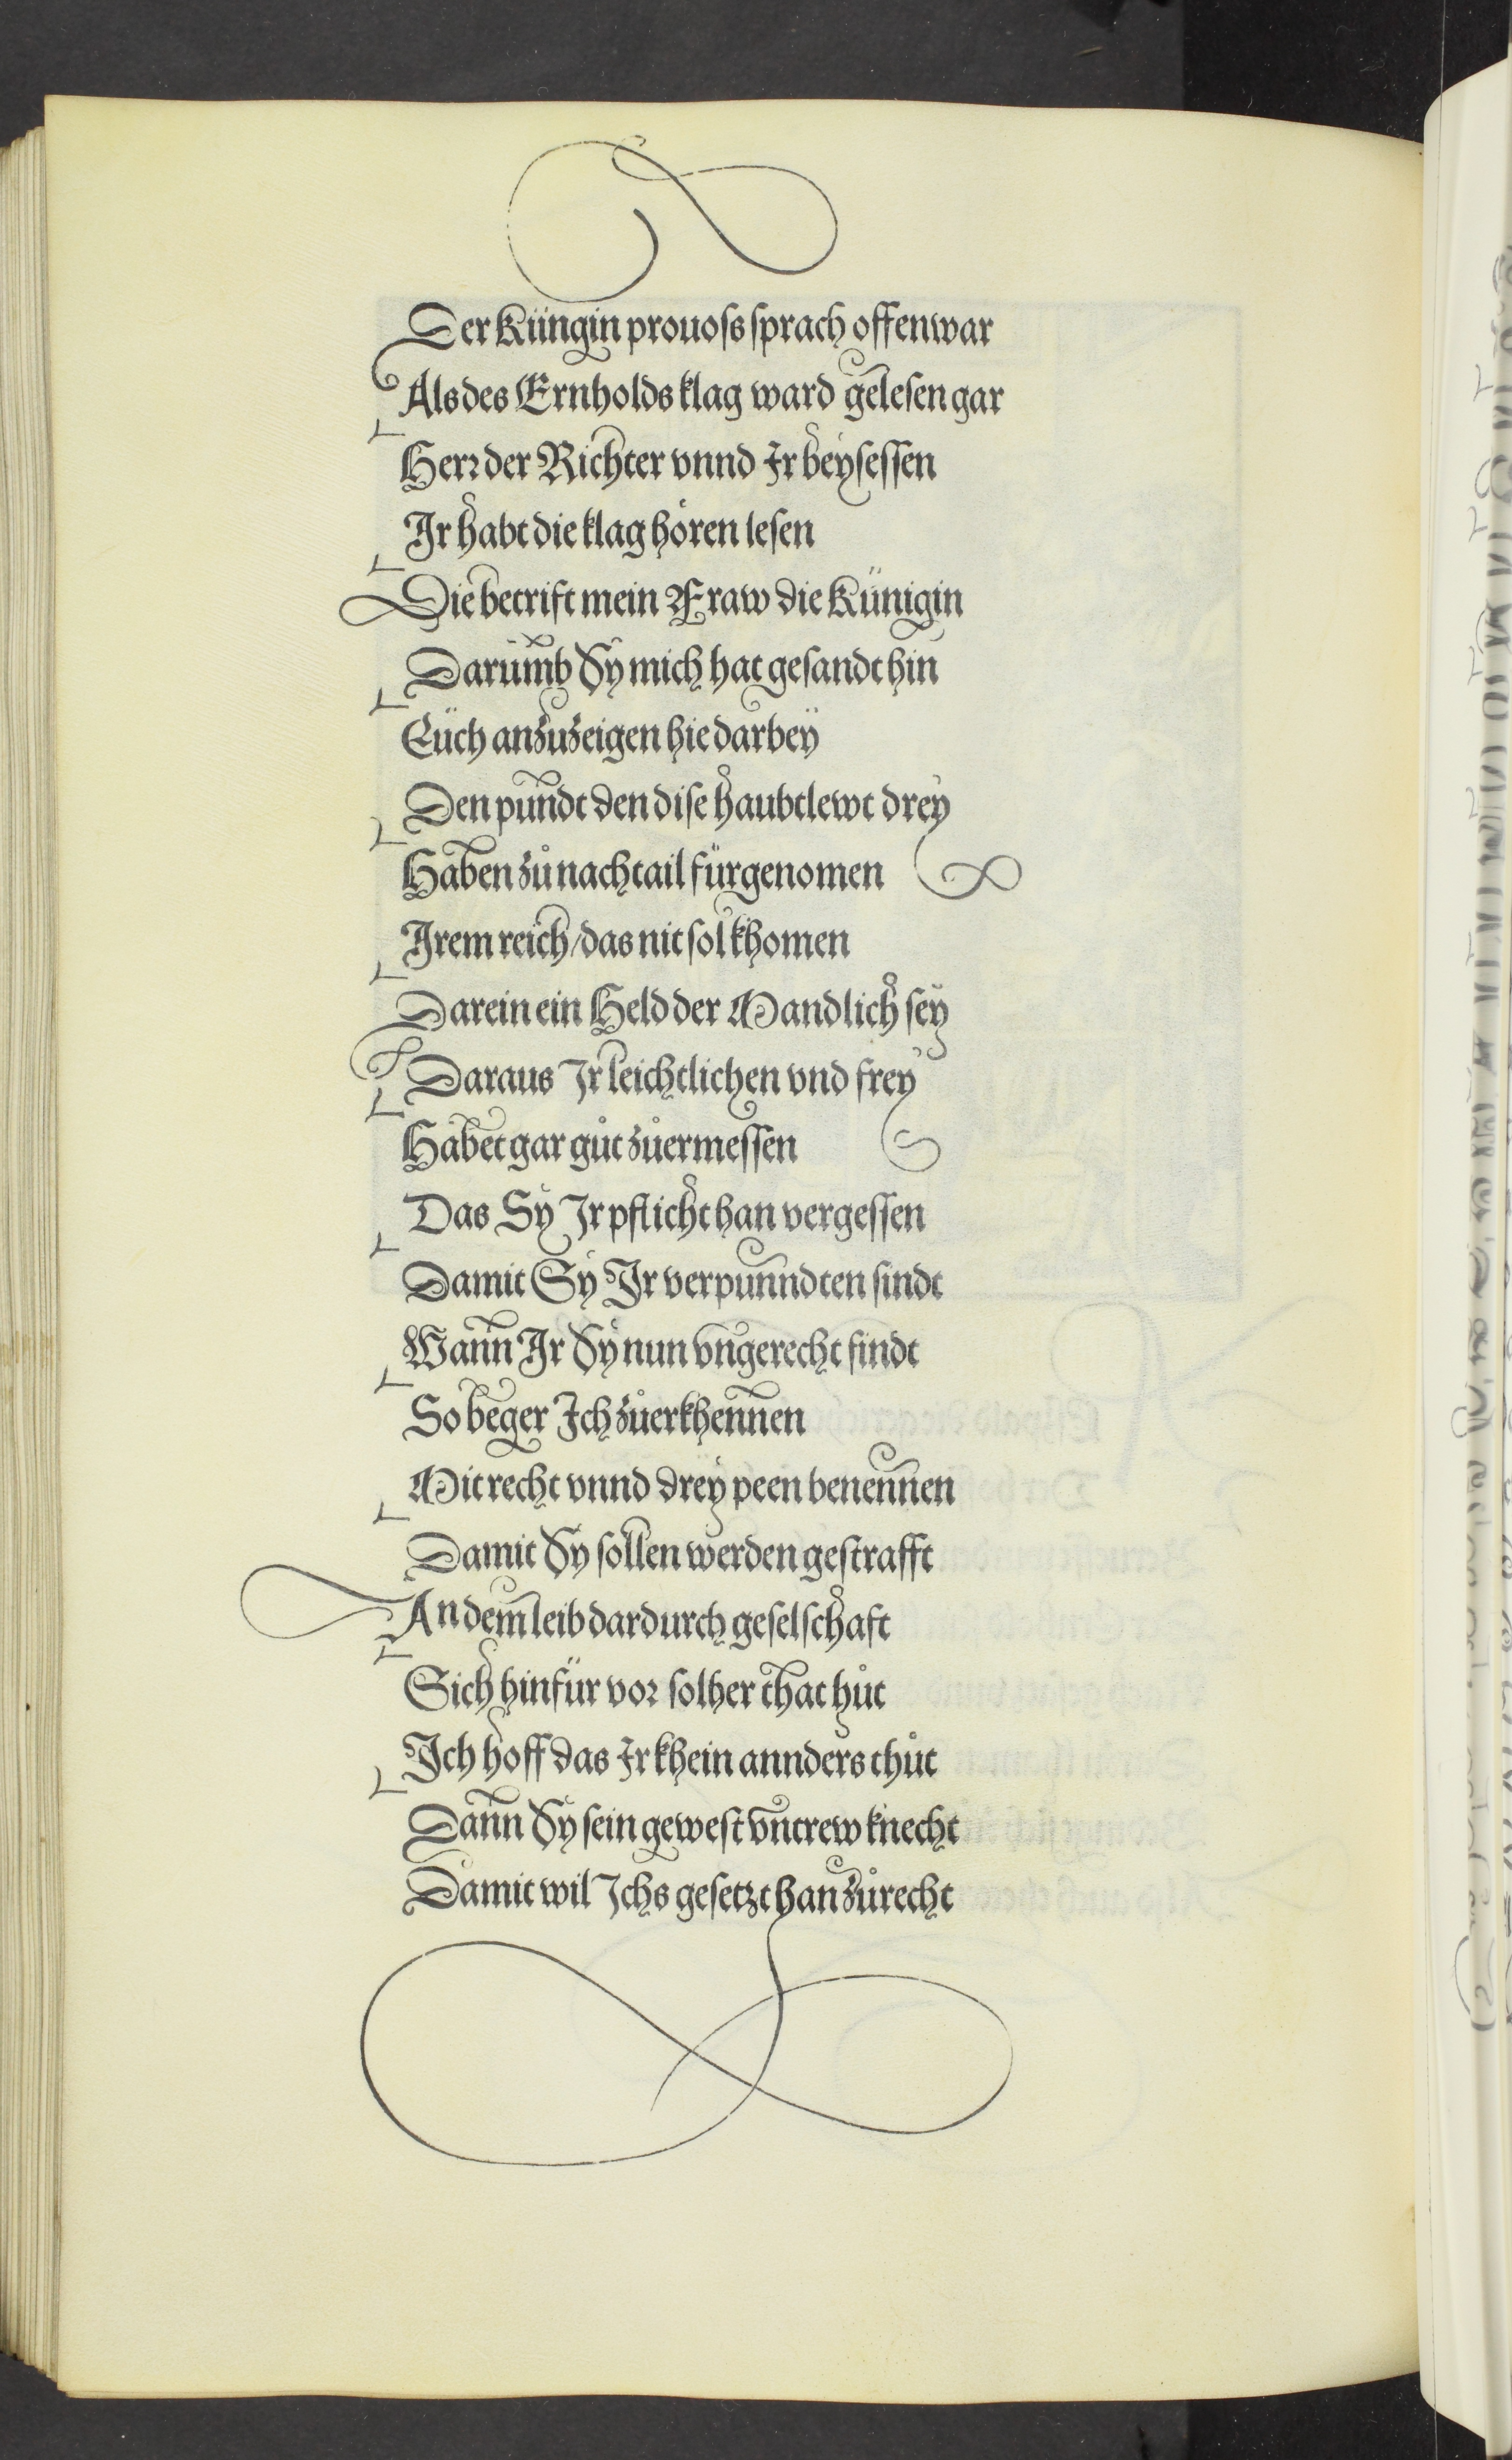 Der Küngin prouoſs ſprach offenwar
Als des Ernholds klag ward geleſen gar
Herr der Richter vnnd Ir beyſeſſen
Ir habt die klag hören leſen
Die betrift mein Fraw die Künigin
Darumb Sy mich hat geſandt hin
Eüch anzuzeigen hie darbey
Den pundt den diſe haubtlewt drey
Haben zů nachtail fürgenomen
Irem reich/das nit ſol khomen
Darein ein Held der Mandlich ſey
Daraus Ir leichtlichen vnd frey
Habet gar gůt zůermeſſen
Das Sy Ir pflicht han vergeſſen
Damit Sy Ir verpunndten ſindt
Wann Ir Sy nun vngerecht findt
So beger Ich zůerkhennen
Mit recht vnnd drey peen benennen
Damit Sy ſollen werden geſtrafft
An dem leib dardurch geſelſchaft
Sich hinfür vor ſolher that hůt
Ich hoff das Ir khein annders thůt
Dann Sy ſein geweſt vntrew knecht
Damit wil Ichs geſetzt han zůrecht